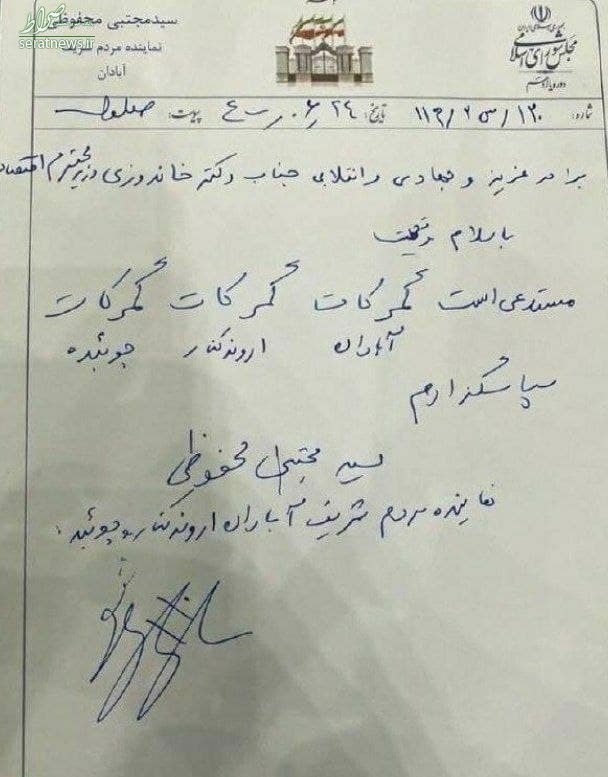 صراط
seratnews.ir
سیدمجتبی محفوظی
نماینده مردم شریف
آبادان
جمهوری اسلامی ایران
مجلس شورای اسلامی
دوره یازدهم
شماره: ۱۱۶/۲س/۱۳۰ تاریخ: ۲۴/۰۶/ پیوست:
برادر عزیز و جهادی و انقلابی جناب دکتر خاندوزی وزیر محترم اقتصاد
با سلام و تحیت
مستدعی است گمرکات گمرکات گمرکات
آبادان اروندکنار چوئبده
سپاسگذارم
سید مجتبی محفوظی
نماینده مردم شریف آبادان اروندکنار و چوئبده.